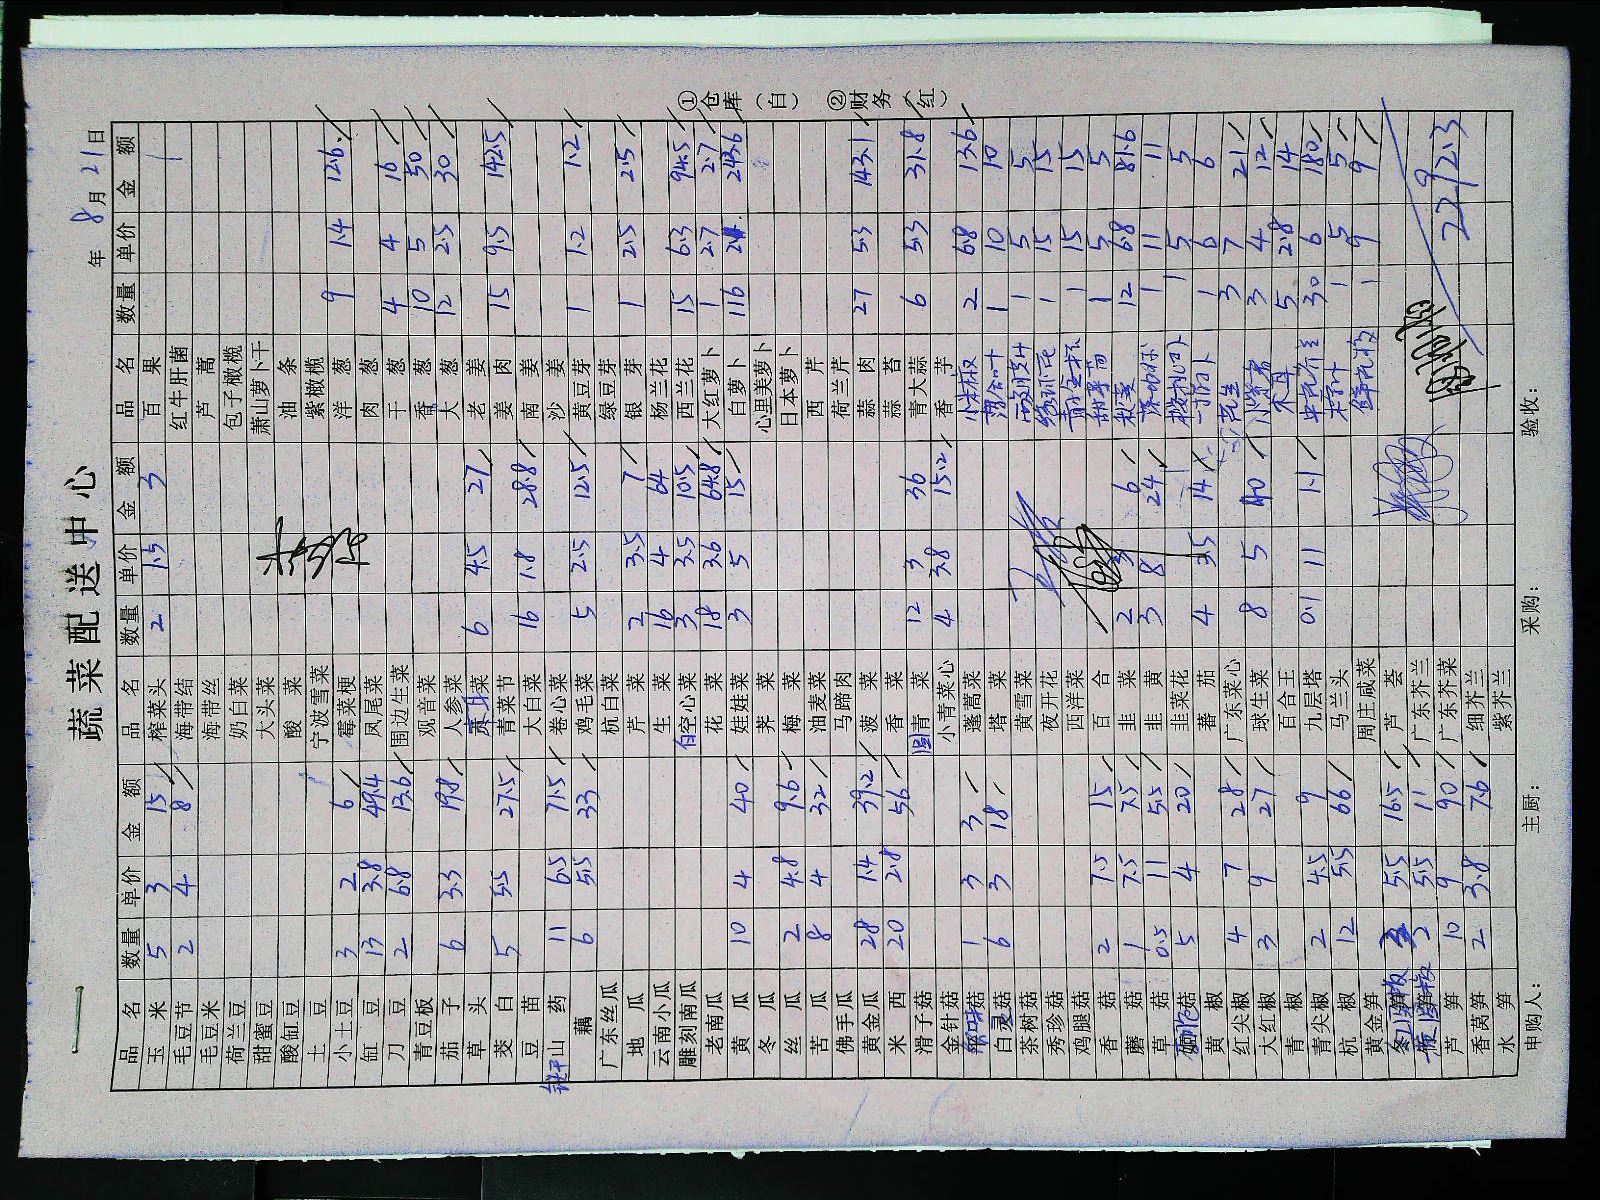 蔬菜配送中心
年 8月 21日
品名 数量 单价 金额 品名 数量 单价 金额 品名 数量 单价 金额
玉米 5 3 15 榨菜头 2 1.5 3 百果
毛豆节 2 4 8 海带结 红牛肝菌
毛豆米 海带丝 芦蒿
荷兰豆 奶白菜 包子橄榄
甜蜜豆 大头菜 萧山萝卜干
酸缸豆 酸菜 油条
土豆 宁波雪菜 紫橄榄
小土豆 3 2 6 霉菜梗 洋葱 9 1.4 12.6
缸豆 13 3.8 49.4 凤尾菜 肉葱
刀豆 2 6.8 13.6 围边生菜 干葱 4 4 16
青豆板 观音菜 香葱 10 5 50
茄子 6 3.3 19.8 人参菜 大葱 12 2.5 30
草头 菜 6 4.5 27 老姜
茭白 5 5.5 27.5 青菜节 姜肉 15 9.5 142.5
豆苗 大白菜 16 1.8 28.8 南姜
铁棍山药 11 6.5 71.5 卷心菜 沙姜
藕 6 5.5 33 鸡毛菜 5 2.5 12.5 黄豆芽 1 1.2 1.2
广东丝瓜 杭白菜 绿豆芽
地瓜 芹菜 2 3.5 7 银芽 1 2.5 2.5
云南小瓜 生菜 16 4 64 杨兰花
雕刻南瓜 白空心菜 3 3.5 10.5 西兰花 15 6.3 94.5
老南瓜 花菜 18 3.6 64.8 大红萝卜 1 2.7 2.7
黄瓜 10 4 40 娃娃菜 3 5 15 白萝卜 116 2.1 243.6
冬瓜 荠菜 心里美萝卜
丝瓜 2 4.8 9.6 梅菜 日本萝卜
苦瓜 8 4 32 油麦菜 西芹
佛手瓜 马蹄肉 荷兰芹
黄金瓜 28 1.4 39.2 菠菜 蒜肉 27 5.3 143.1
米西 20 2.8 56 香菜 蒜苔
滑子菇 圆青菜 12 3 36 青大蒜 6 5.3 31.8
金针菇 小青菜心 4 3.8 15.2 香芋
菇 1 3 3 蓬蒿菜 小米椒 2 6.8 13.6
白灵菇 6 3 18 塔菜 薄荷叶 1 10 10
茶树菇 黄雪菜 1 5 5
秀珍菇 夜开花 1 15 15
鸡腿菇 西洋菜 1 15 15
香菇 2 7.5 15 百合 1 5 5
蘑菇 1 7.5 7.5 韭菜 2 3 6 秋葵 12 6.8 81.6
草菇 0.5 11 5.5 韭黄 3 8 24 1 11 11
菇 5 4 20 韭菜花 1 5 5
黄椒 蕃茄 4 3.5 14 1 6 6
红尖椒 4 7 28 广东菜心 花生 3 7 21
大红椒 3 9 27 球生菜 8 5 40 3 4 12
青椒 百合王 木耳 5 2.8 14
青尖椒 2 4.5 9 九层塔 0.1 11 1.1 30 6 180
杭椒 12 5.5 66 马兰头 1 5 5
黄金笋 周庄咸菜 1 9 9
3 5.5 16.5 芦荟
2 5.5 11 广东芥兰
芦笋 10 9 90 广东芥菜 2292.3
香莴笋 2 3.8 7.6 细芥兰
水笋 紫芥兰
申购人: 主厨: 采购: 验收:
①仓库(白) ②财务(红)